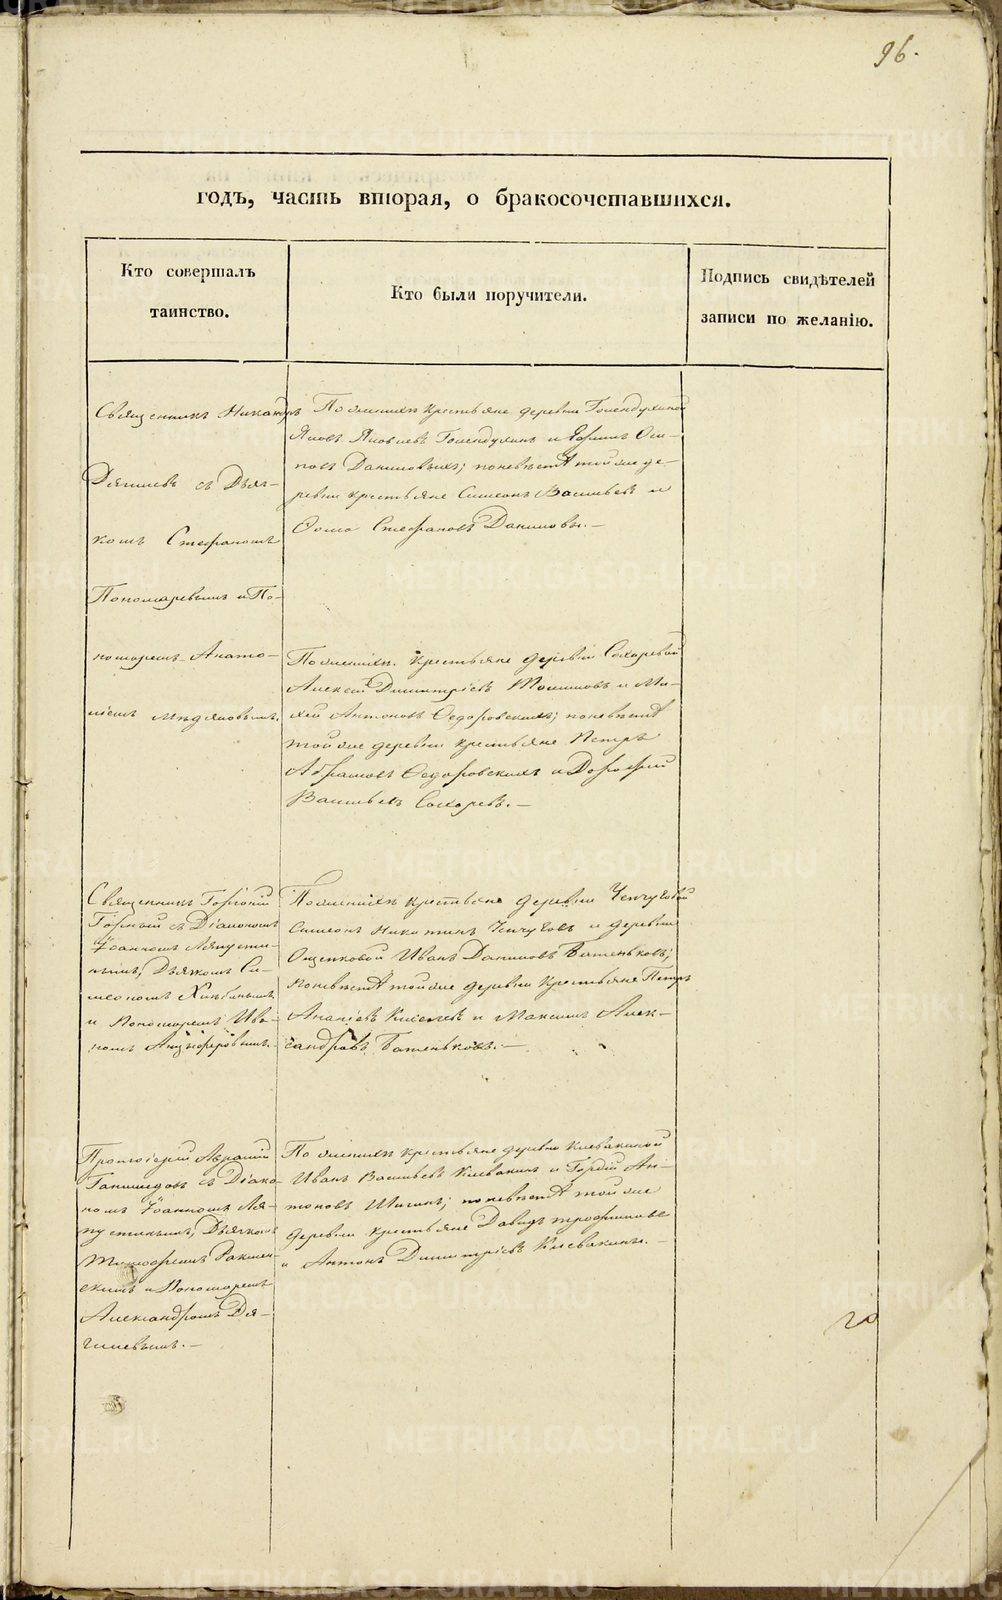 96.
годъ, часть вторая, о бракосочетавшихся.
Кто совершалъ
таинство.
Кто были поручители.
Подпись свидѣтелей
записи по желанію.
Священникъ Никандръ
Дягилевъ съ Дьяч-
комъ Стефаномъ
Пономаревымъ и По-
номаремъ Анато-
ліемъ
По женихѣ крестьяне деревни Голендухиной
Яковъ Яковлевъ Голендухинъ и Ефимъ Оси-
повъ Даниловыхъ; по невѣстѣ той же де-
ревни крестьяне Симеонъ Васильевъ и
Фома Стефановъ Даниловы.—
По женихѣ крестьяне деревни Сохаревой
Алексѣй Димитріевъ и Ми-
хей Антоновъ Федоровскихъ; по невѣстѣ
той же деревни крестьяне Петръ
Абрамовъ Федоровскихъ и Дорофей
Васильевъ Сохаревъ.—
Священникъ Георгій
съ Діакономъ
Іоанномъ Ляпусти-
нымъ, Дьячкомъ Си-
меономъ
и Пономаремъ Ива-
номъ
По женихѣ крестьяне деревни Чепчуговой
Симеонъ Никитинъ Чепчуговъ и деревни
Ощепковой Иванъ Даниловъ Батеньковъ;
по невѣстѣ той же деревни крестьяне Петръ
Ананіевъ Киселевъ и Максимъ Алек-
сандровъ Батеньковъ.—
Протоіерей
съ Діако-
номъ Іоанномъ Ля-
пустинымъ, Дьячкомъ
Тимофеемъ
и Пономаремъ
Александромъ Дя-
гилевымъ.—
По женихѣ крестьяне деревни Клевакиной
Иванъ Васильевъ Клевакинъ и Гордѣй Ан-
тоновъ; по невѣстѣ той же
деревни крестьяне Давидъ Трофимовъ
и Антонъ Димитріевъ Клевакины.—
METRIKI.GASO-URAL.RU